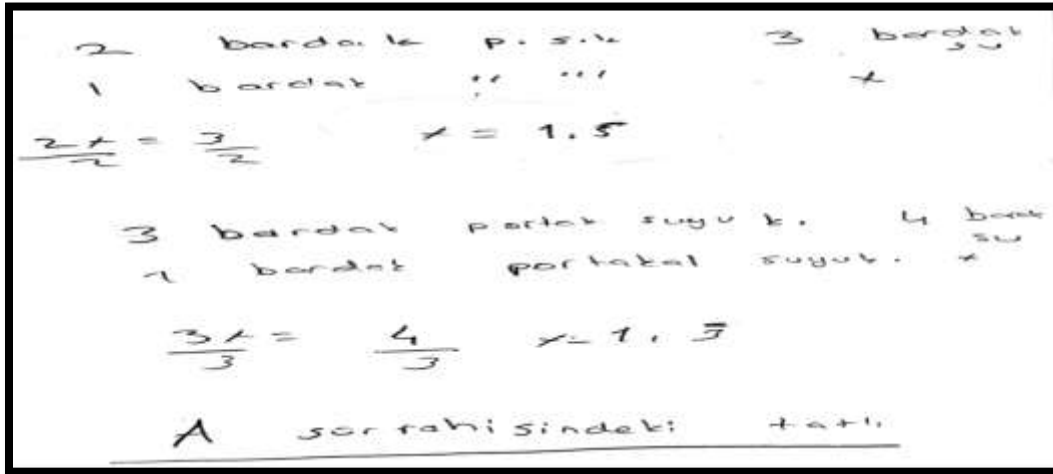 2 bardak p. s.k 3 bardak su
1 bardak " " x
2x/2 = 3/2 x = 1.5
3 bardak portak suyu k. 4 bardak su
1 bardak portakal suyu k. x
3x/3 = 4/3 x = 1,3̅
A sürrahisindeki tatlı